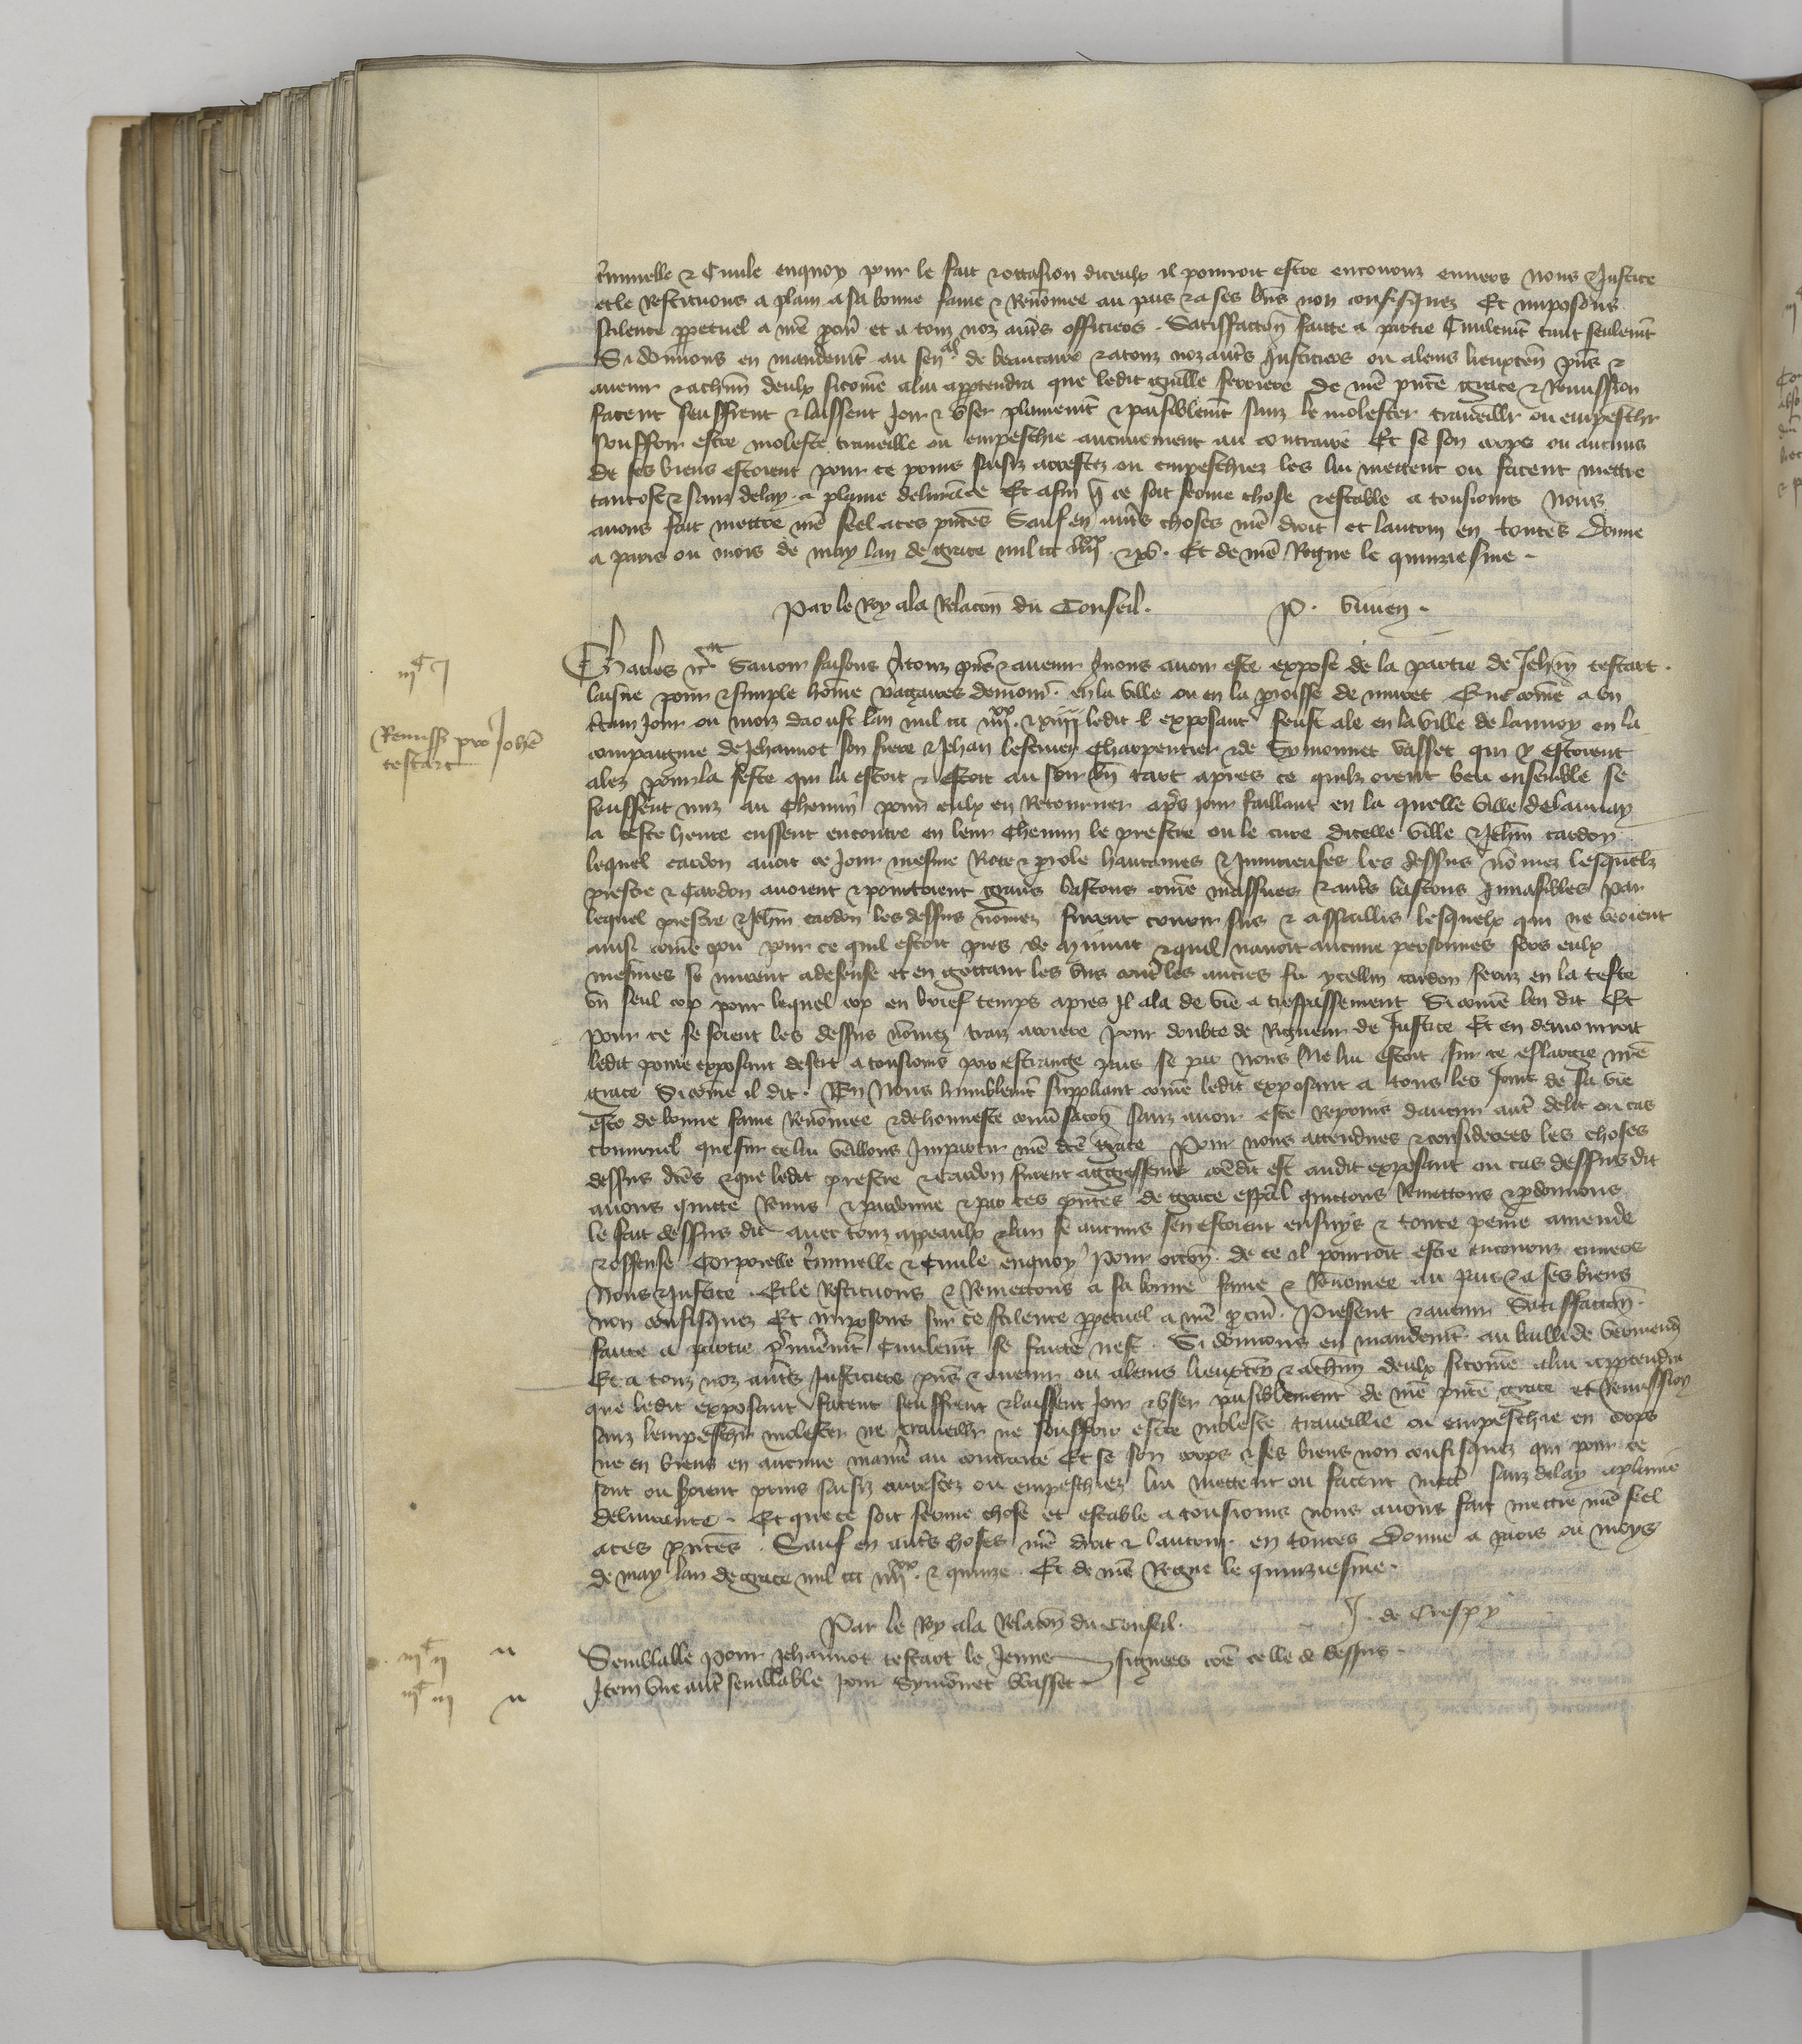 c̃iminelle & Ciuile enquoy pour le fait & occasion diceulx il pourroit estre encouruz enuers nous & Justice
et le Restituons a plain a sa bonne fame & Renõmee au pais & a ses biẽs non confisquez Et imposons
silence ꝑpetuel a nr̃e ꝓcur̃ et a touz noz aut̃s officiers . Satisfaccõn faicte a partie Ciuilemẽt tant seulemẽt
Si donnons en mandemẽt au sen^al de beaucaire & a touz noz aut̃s Justiciers ou a leurs lieuxten̄ pñs &
auenir & a chũn deulx si com̃e a lui appartendra que ledit guille ferriere de nr̃e pñte grace & Remission
facent seuffrent & laissent Joir & vser plainemẽt & paisiblemẽt sanz le molester traueillr ou empeschr
souffrir estre moleste traueille ou empeschie aucunement au contraire Et se son corps ou aucuns
de ses biens estoient pour ce prins saisiz arrestez ou empeschiez les lui mettent ou facent mettre
tantost & sanz delay . a plaine deliurãce Et afin q̃ ce soit ferme chose & estable a tousiours Nous
auons fait mettre nr̃e seel a ces pñtes Sauf en aut̃s choses nr̃e droit et lautrui en toutes Donne
a paris ou mois de may lan de grace mil ccc iiii^xx . & xv . Et de nr̃e Regne le quinziesme .
Par le Roy a la Relacõn du Conseil . P . viuien .
iii^c j
Charles &c Sauoir faisons a touz pñs & auenir a nous auoir este expose de la partie de Jehan̄ testart .
laisne poure & simple hom̃e vagaires demour̃ . en la ville ou en la ꝑroisse de muret Que com̃e a vn
Remiss pro Johe
testart
certain Jour ou mois daoust lan mil ccc iiii^xx . & xiiii ledit exposant feust ale en la ville de launoy en la
compaignie de Jehannot son frere & Jehan lescuier Charpentier & de Symonnet vasset qui y estoient
alez pour la feste qui la estoit & estoit au soir bñ tart apres ce quilz orent beu ensemble se
feussent mis au chemin pour eulx en Retourner apr̃s jour faillant en la quelle ville de launay
a ceste heure eussent encontre en leur chemin le prestre ou le cure dicelle ville & Jehan̄ cardon
lequel cardon auoit ce Jour mesme & ꝑole hautaines & Iniurieuses les dessus nõmez lesquelz
prestre & Cardon auoient & portoient grans bastons com̃e massues & aut̃s bastons Inuasibles par
lequel prestre & Jehan̄ cardon les dessus nõmez furent couru sus & assaillis lesquelx qui ne veoient
ainsi com̃e pou pour ce quil estoit pres de minuit & quil nauoit aucune personnes fors eulx
mesmes se mirent a defense et en gettant les vns contr̃ les autres fu ycellui cardon feruz en la teste
vn seul cop pour lequel cop en brief temps apres Il ala de vie a trespassement Si com̃e len dit Et
pour ce se soient les dessus nõmez traiz arriere pour doubte de Rigueur de Justice Et en demourroit
ledit poure exposant desert a tousiours par estrange pais se par nous Ne lui estoit sur ce eslargie nr̃e
grace Si com̃e il dit . En Nous humblemẽt suppliant com̃e ledit exposant a tous les Jours de sa vie
este de bonne fame Renõmee & de honneste conũsacõn sanz auoir este Repris dauc̃un aut̃ delit ou cas
criminel que sur ce lui veillons Impartir nr̃e dc̃e grace Pour nous attendues & considerees les choses
dessus dc̃es & que ledit prestre & Cardon furent aggresseurs com̃e dit est audit exposant ou cas dessus dit
auons quitte Remis & pardonne & par ces pñtes de grace especl̃ quittons Remettons & ꝑdonnons
le fait dessus dit auec touz appeaulx & ban se aucuns sen estoient ensuys & toute peine amende
& offense Corporelle c̃iminelle & Ciuile enquoy pour occõn de ce il pourroit estre encouruz enuers
Nous & Justice . Et le Restituons & Remettons a sa bonne fame & Renõmee au pais & a ses biens
non confisquez Et imposons sur ce silence ꝑpetuel a nr̃e ꝓcur̃ . Present & auenir Satisfaccõn .
faicte a partie p̃miẽmt Ciuilemt se faicte nest . Si donnons en mandemẽt . au bailli de vermend̃
Et a touz noz aut̃s Justiciers pñs & auenir ou a leurs lieuxten̄ & a chũn deulx si com̃e a lui appartendra
que ledit exposant facent seuffrent & laissent Joir & vser paisiblement de nr̃e pñte grace et Remission
sanz lempeschr molester ne traueillr ne souffrir estre moleste traueillie ou empeschie en corps
ne en biens en aucune manie͛ au contraire Et se son corps & ses biens non confisquez qui pour ce
sont ou soient prins saisiz arrestez ou empeschiez lui mettent ou facent mettr̃ sanz delay a plaine
deliurance . Et que ce soit ferme chose et estable a tousiours nous auons fait mettre nr̃e seel
a ces pñtes . Sauf en aut̃s choses nr̃e droit & lautrui . en toutes Donne a Paris ou moys
de may lan de grace mil ccc iiii^xx . & quinze . Et de nr̃e Regne le quinziesme .
Par le Roy a la Relacõn du Conseil . J . de Crespy
iii^c ij Semblable pour Jehannot testart le Jenne signees com̃e celle de dessus .
iii^c iij Item vne autr̃ semblable pour Symonnet vasset